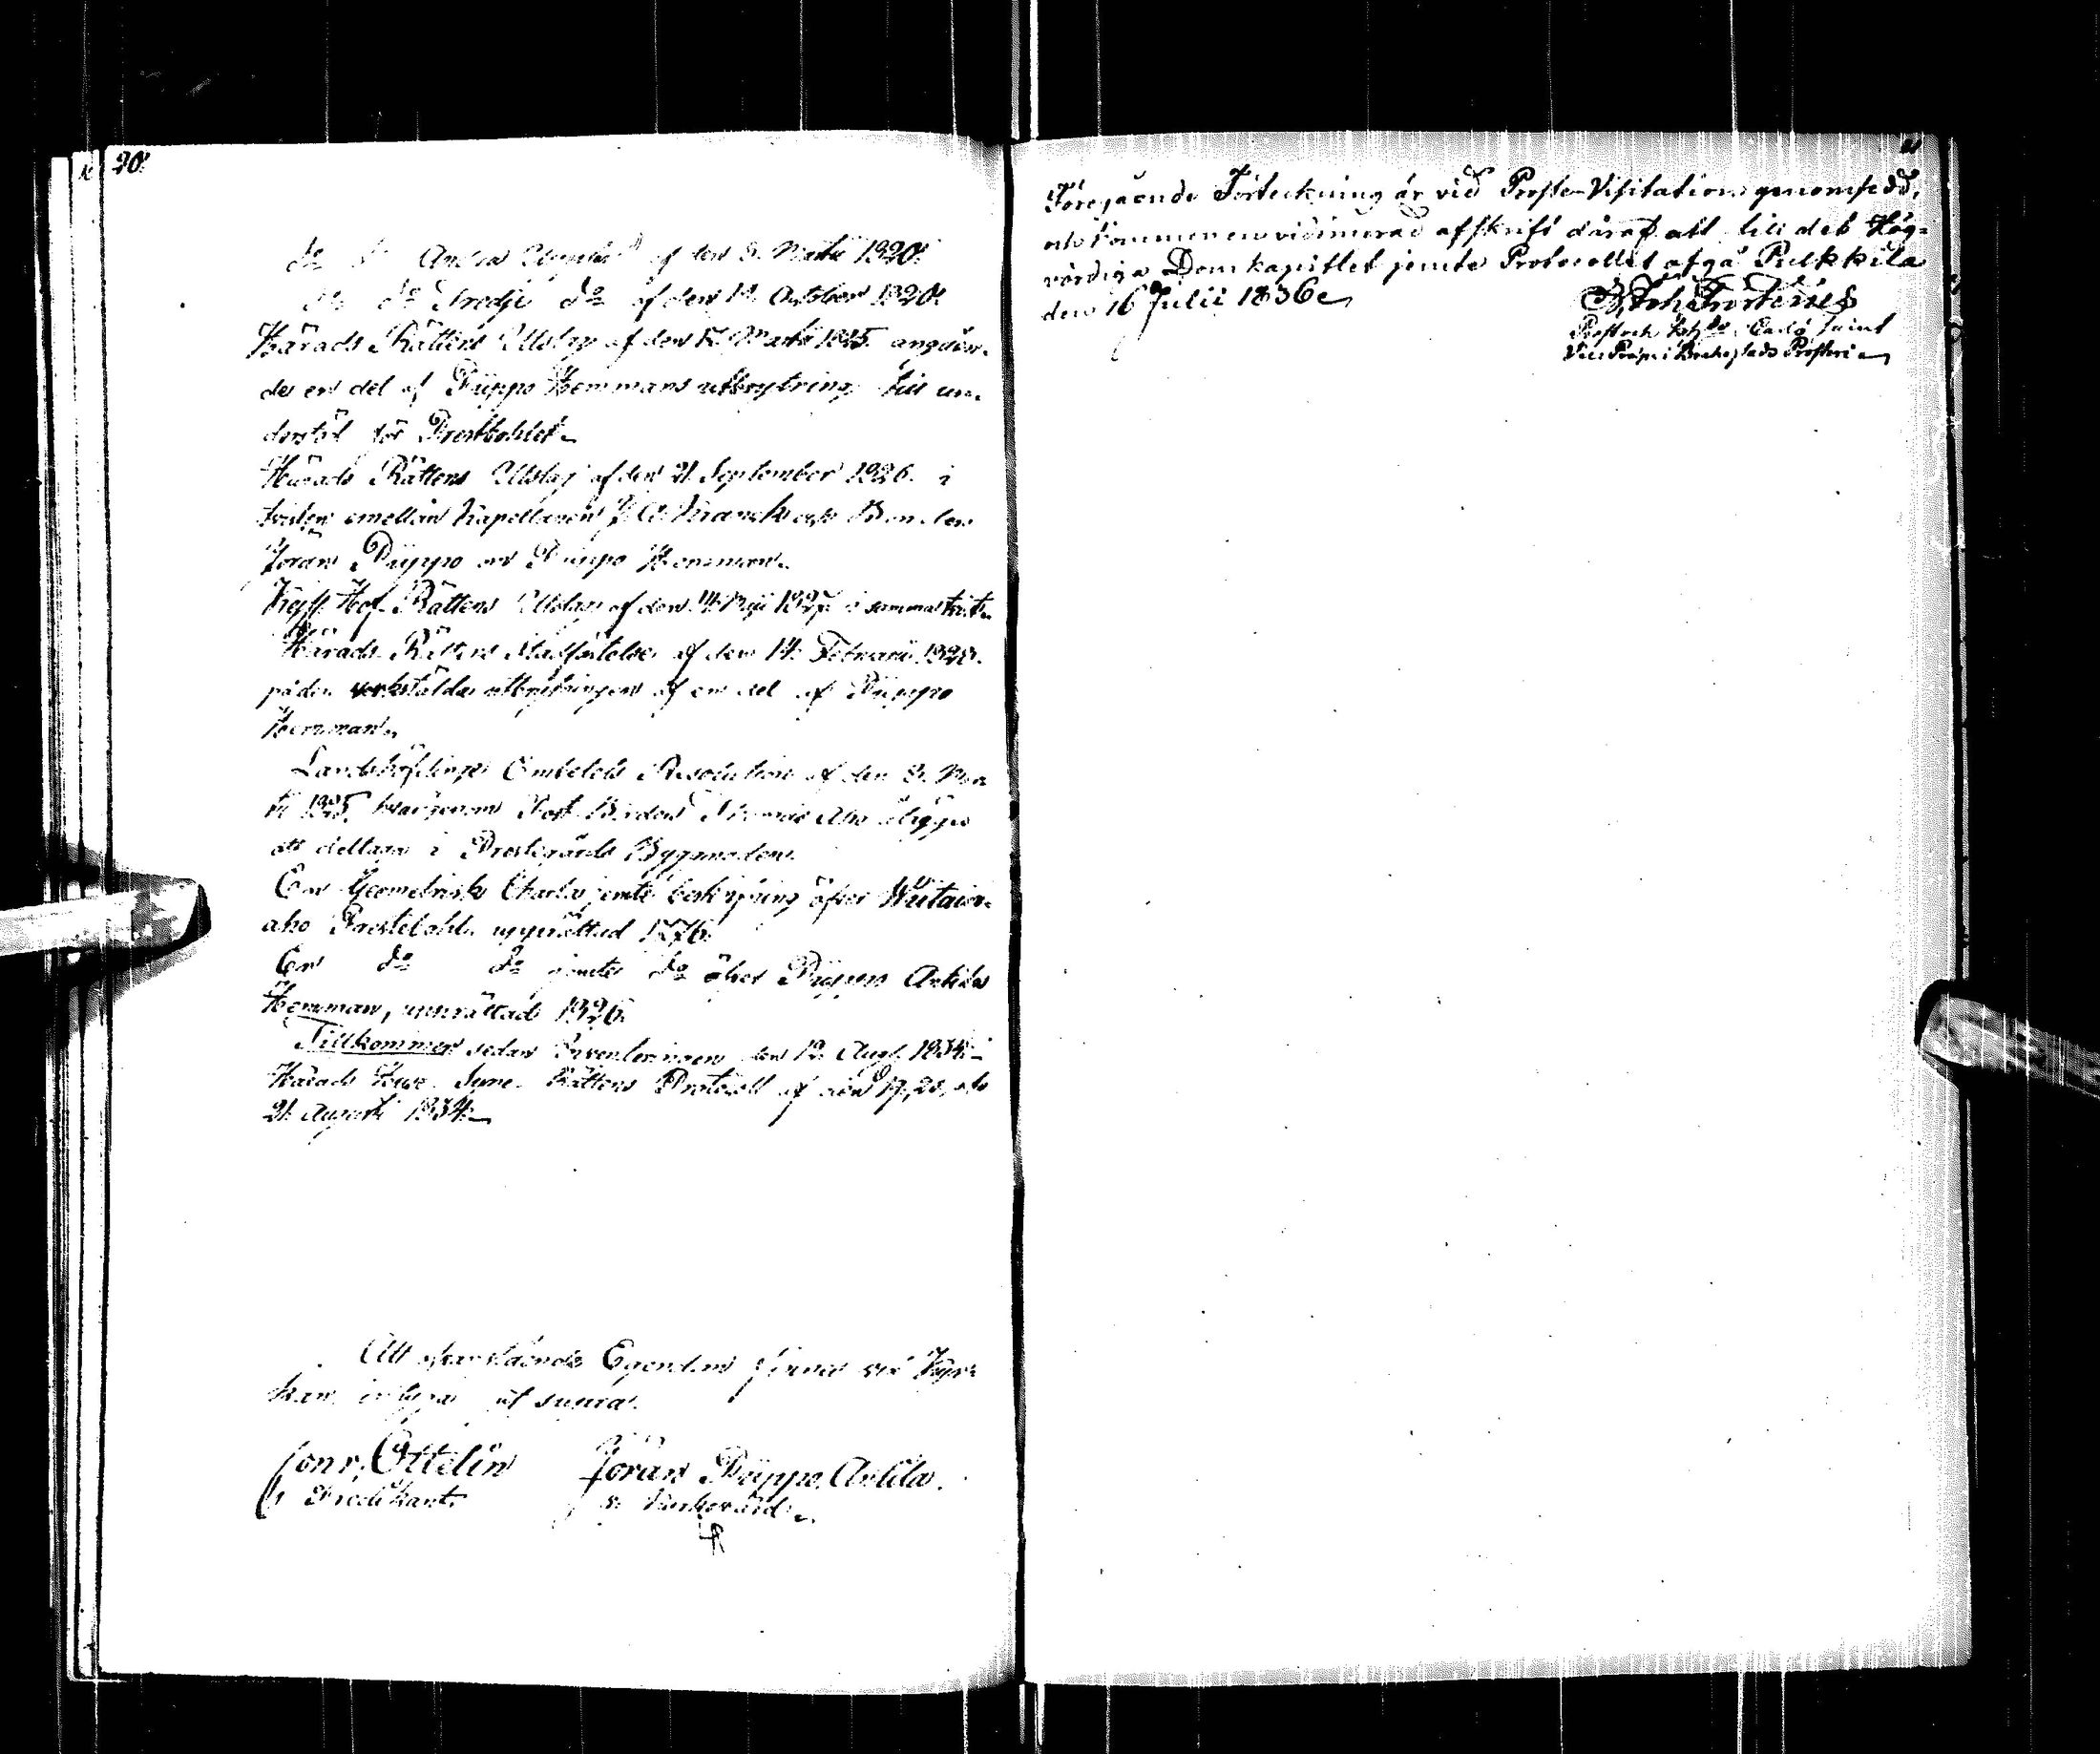 20.
d:o d:o Andra Uppbud af den 8. Martii 1820.
d:o d:o Tredje d:o af den 14. October 1820.
Härads Rättens Utslag af den 17. Martii 1825. angåen-
de en del af Piippo Hemmans utbrytning till un-
derstöd för Prestbohlet.
Härads Rättens Utslag af den 21 September 1826. i
tvisten emellan Kapellanen J. A. Kranck och Bonden
Jöran Piippo om Piippo Hemman.
Kejs. Hof-Rättens Utslag af den 14. Maji 1827. i samma tvist.
Härads Rättens Stadfästelse af den 14. Februarii 1828.
på den verkstälda utbrytningen af en del af Piippo
Hemman.
Landshöfdinge Embetets Resolution af den 8. Mar-
tii 1825, hvarigenom Post-Bonden Aho ålägges
att deltaga i Prestgårds Byggnaden.
En Geometrisk Charta jemte beskrifning öfver Wiitain-
aho Prestebohl upprättad 1776.
En d:o d:o jemte d:o öfver Piippo Antila
Hemman, upprättad 1826.
Tillkommer sedan Inventeringen den 12 Aug. 1834.
Härads Syne-Rättens Protocoll af den 19, 20, och
21. Augusti 1834.
Allt ofvanstående Egendom finnes vid Kyr-
kan, intyga ut supra.
Conr. Ottelin Jöran Piippo Antila.
Predikant. Kyrkovärd.
21
Föregående Förteckning är vid Proste-Visitation genomsedd,
och kommer en vidimerad afskrift däraf att till det Hög-
vördiga Domkapitlet jemte Protocollet afgå. Pulkkila
den 16 Julii 1836.
Joh. Frosterus
Prost och Kyrkoh:de i Carlö samt
Vice Præp. i Brahestads Prosteri